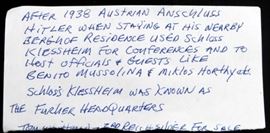 AFTER 1938 AUSTRIAN ANSCHLUSS
HITLER WHEN STAYING AT HIS NEARBY
BERGHOF RESIDENCE USED SCHLOSS
KLESSHEIM FOR CONFERENCES AND TO
HOST OFFICIALS & GUESTS LIKE
BENITO MUSSOLINA & MIKLOS HORTHY etc
SCHLOSS KLESSHEIM WAS KNOWN AS
THE FURHER HEADQUARTERS
REICH SILVER FOR SALE